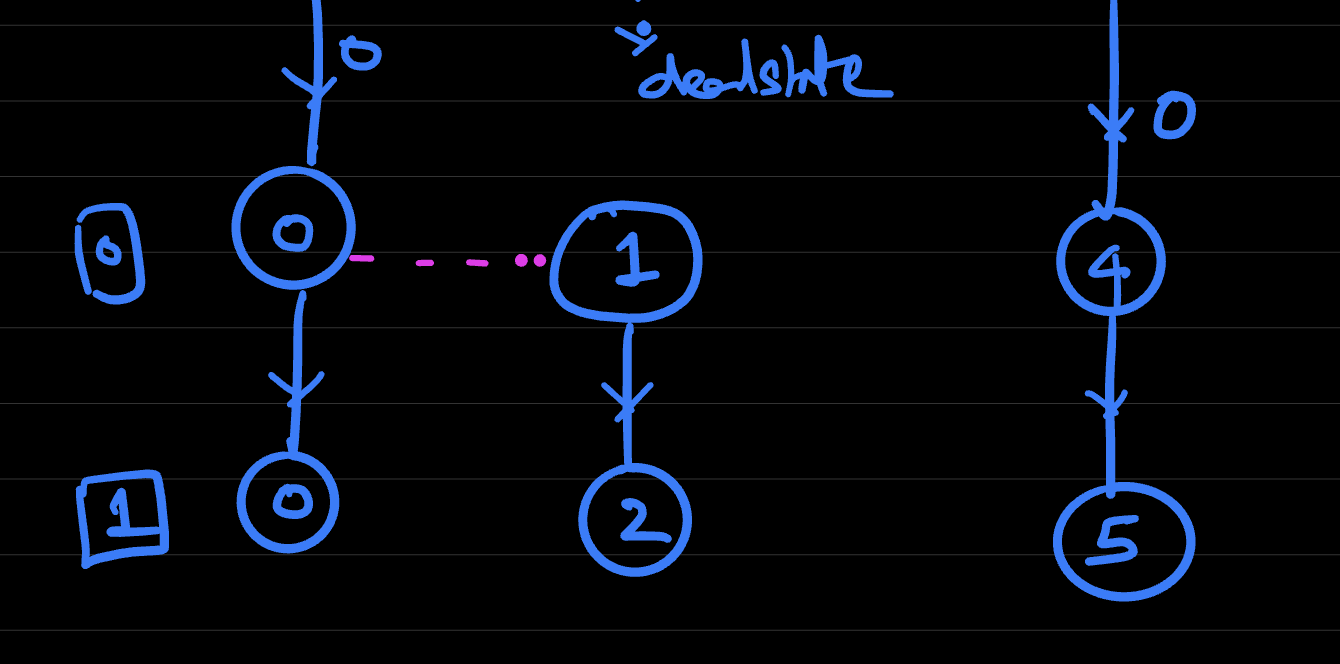 0
deadstate
0
0 0 1 4
1 0 2 5